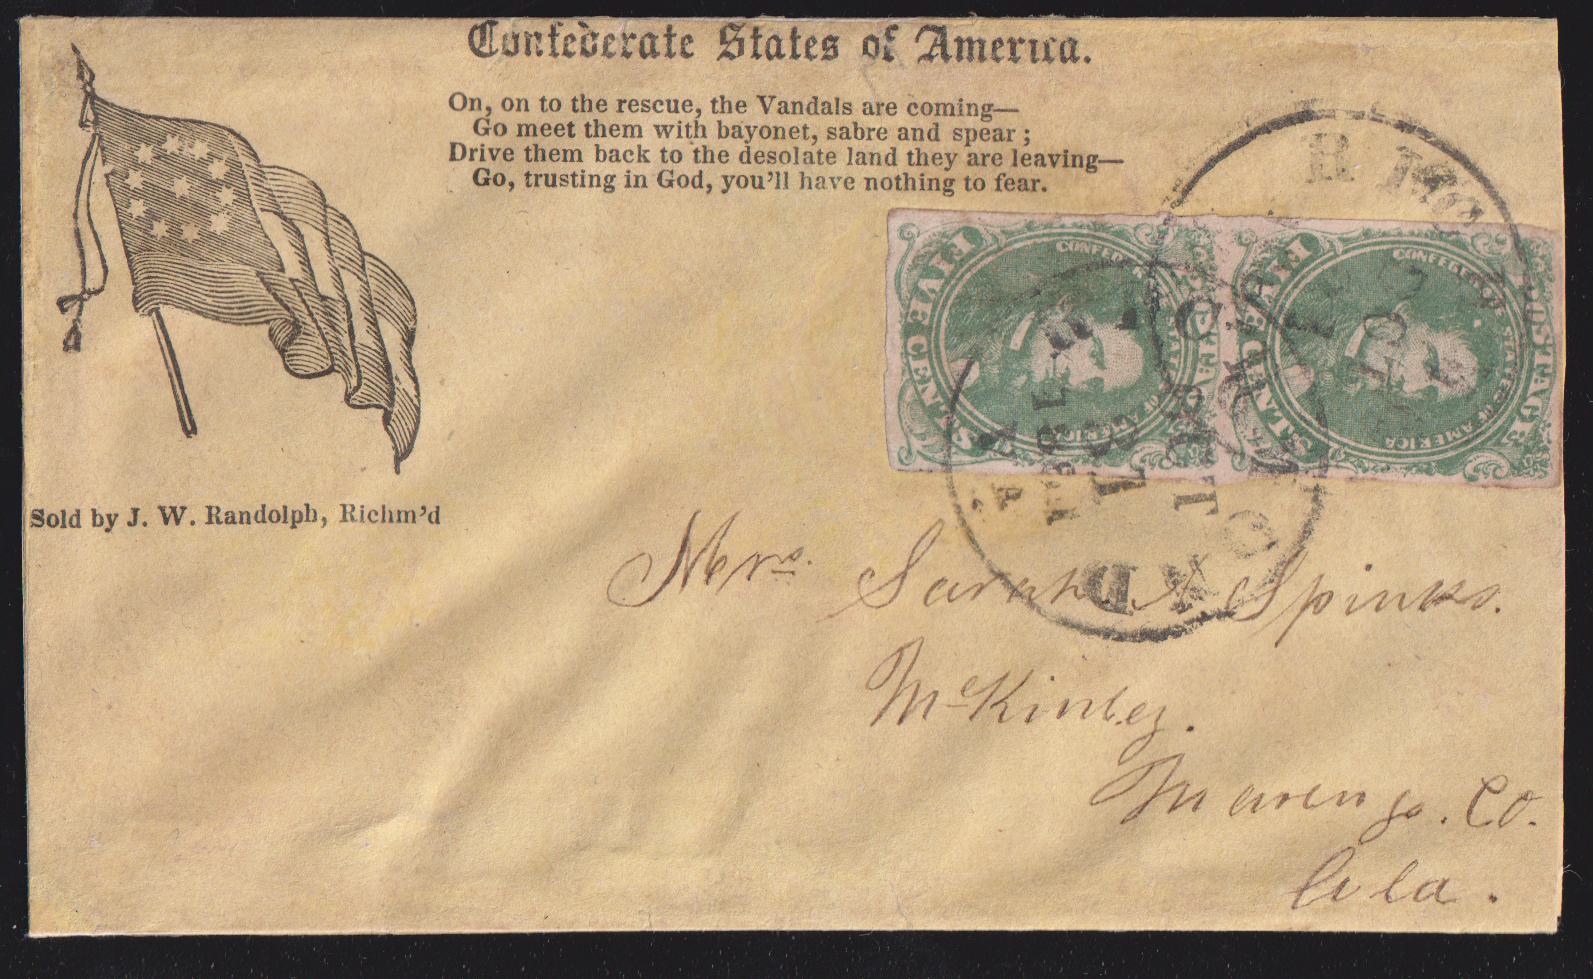 Confederate States of America.
On, on to the rescue, the Vandals are coming—
Go meet them with bayonet, sabre and spear;
Drive them back to the desolate land they are leaving—
Go, trusting in God, you'll have nothing to fear.
FIVE CENTS
CONFEDERATE STATES OF AMERICA
FIVE CENTS
CONFEDERATE STATES OF AMERICA
POSTAGE
OCT
Sold by J. W. Randolph, Richm'd
Mrs. Sarah A Spinks.
McKinley.
Marengo. Co.
Ala.